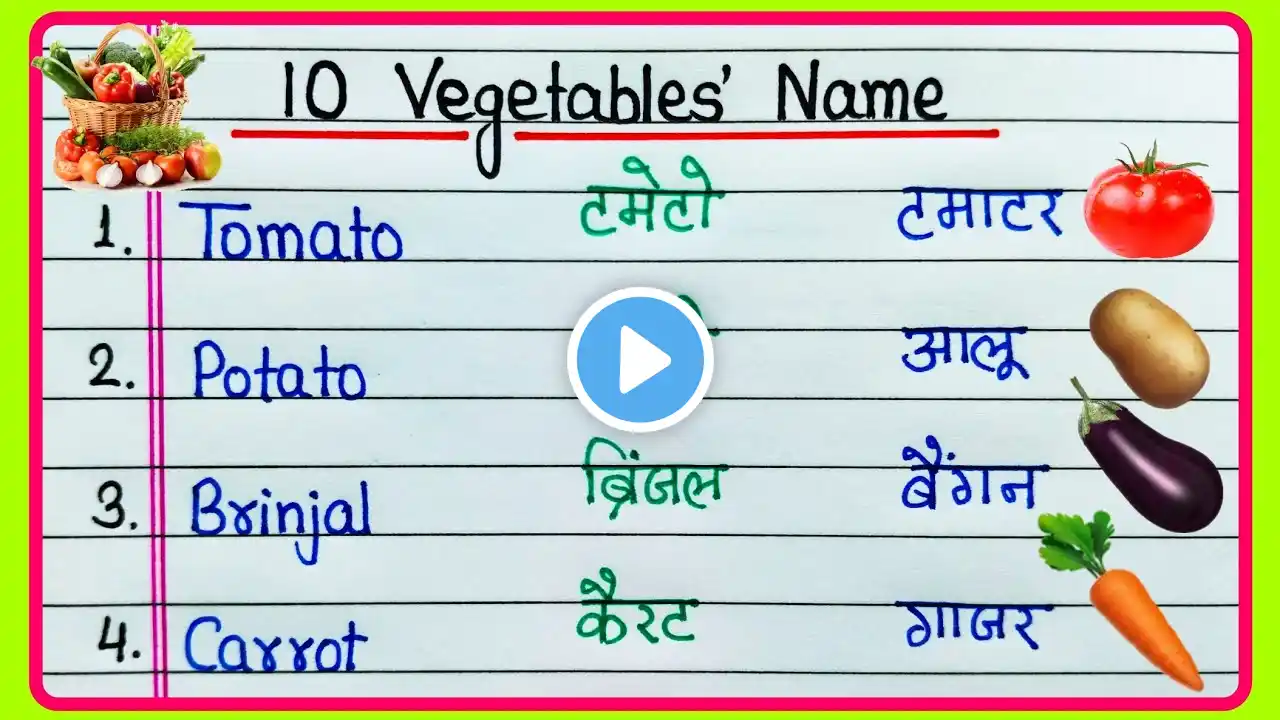 10 Vegetables' Name
1. Tomato टमेटो टमाटर
2. Potato आलू
3. Brinjal ब्रिंजल बैंगन
4. Carrot कैरट गाजर